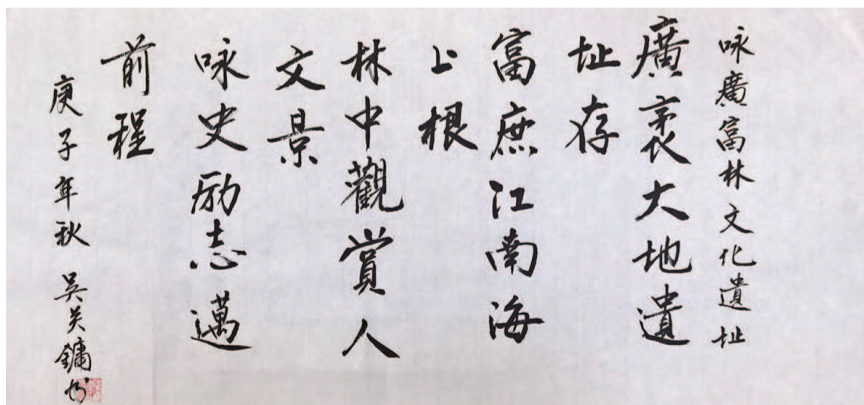 咏廣富林文化遺址
廣袤大地遺
址存
富庶江南海
上根
林中觀賞人
文景
咏史励志邁
前程
庚子年秋 吴关鏞书